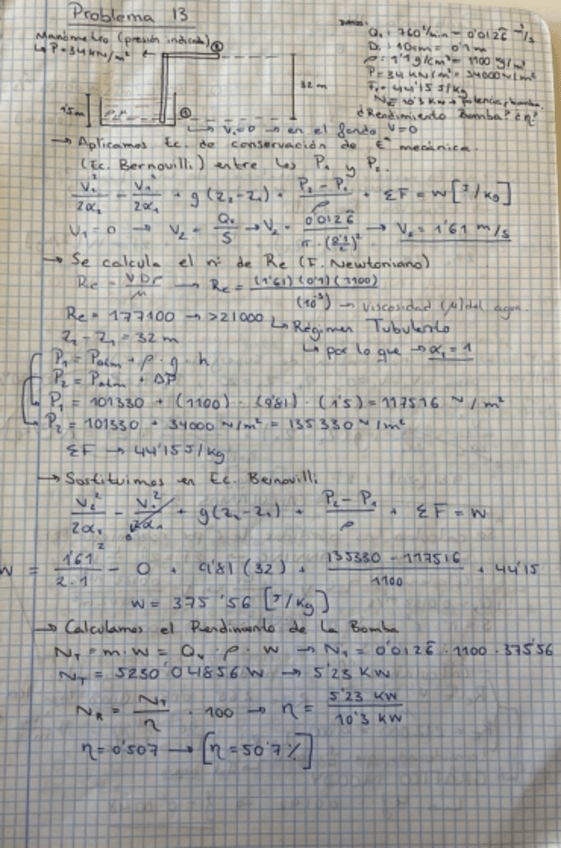 Problema 13
Manómetro (presión indicada)
P = 34 kN/m²
②
32 m
1'5m
①
Datos:
Qv = 760 l/min = 0'0126 m³/s
D = 10cm = 0'1 m
ρ = 1'1 g/cm³ = 1100 kg/m³
P = 34 kN/m² = 34000 N/m²
F = 44'15 J/kg
N = 10'3 kW → potencia bomba.
¿Rendimiento Bomba? ¿η?
→ V₁=0 → en el fondo V=0
→ Aplicamos Ec. de conservación de Eª mecánica.
(Ec. Bernouilli) entre los P₁ y P₂.
V₂²/2α₂ - V₁²/2α₁ + g(z₂-z₁) + P₂-P₁/ρ + ΣF = w [J/kg]
V₁=0 → V₂ = Qv/S → V₂ = 0'0126/π·(0'1/2)² → V₂ = 1'61 m/s
→ Se calcula el nº de Re (F. Newtoniano)
Re = VDρ/μ → Re = (1'61)(0'1)(1100)/(10⁻³) → viscosidad (μ) del agua.
Re = 177100 → >21000 ↳ Régimen Tubulento
z₂ - z₁ = 32 m ↳ por lo que → α₂ = 1
P₁ = Patm + ρ · g · h
P₂ = Patm + ΔP
P₁ = 101330 + (1100) · (9'81) · (1'5) = 117516 N/m²
P₂ = 101330 + 34000 N/m² = 135330 N/m²
ΣF → 44'15 J/kg
→ Sostituimos en Ec. Bernouilli
V₂²/2α₂ - V₁²/2α₁ 0 + g(z₂-z₁) + P₂-P₁/ρ + ΣF = w
w = 1'61²/2·1 - 0 + 9'81 (32) + 135330 - 117516/1100 + 44'15
w = 375'56 [J/kg]
→ Calculamos el Rendimiento de la Bomba
N_T = m·w = Qv · ρ · w → N_T = 0'0126 · 1100 · 375'56
N_T = 5230'04856 W → 5'23 KW
N_R = N_T/η · 100 → η = 5'23 KW/10'3 KW
η = 0'507 → [η = 50'7%]